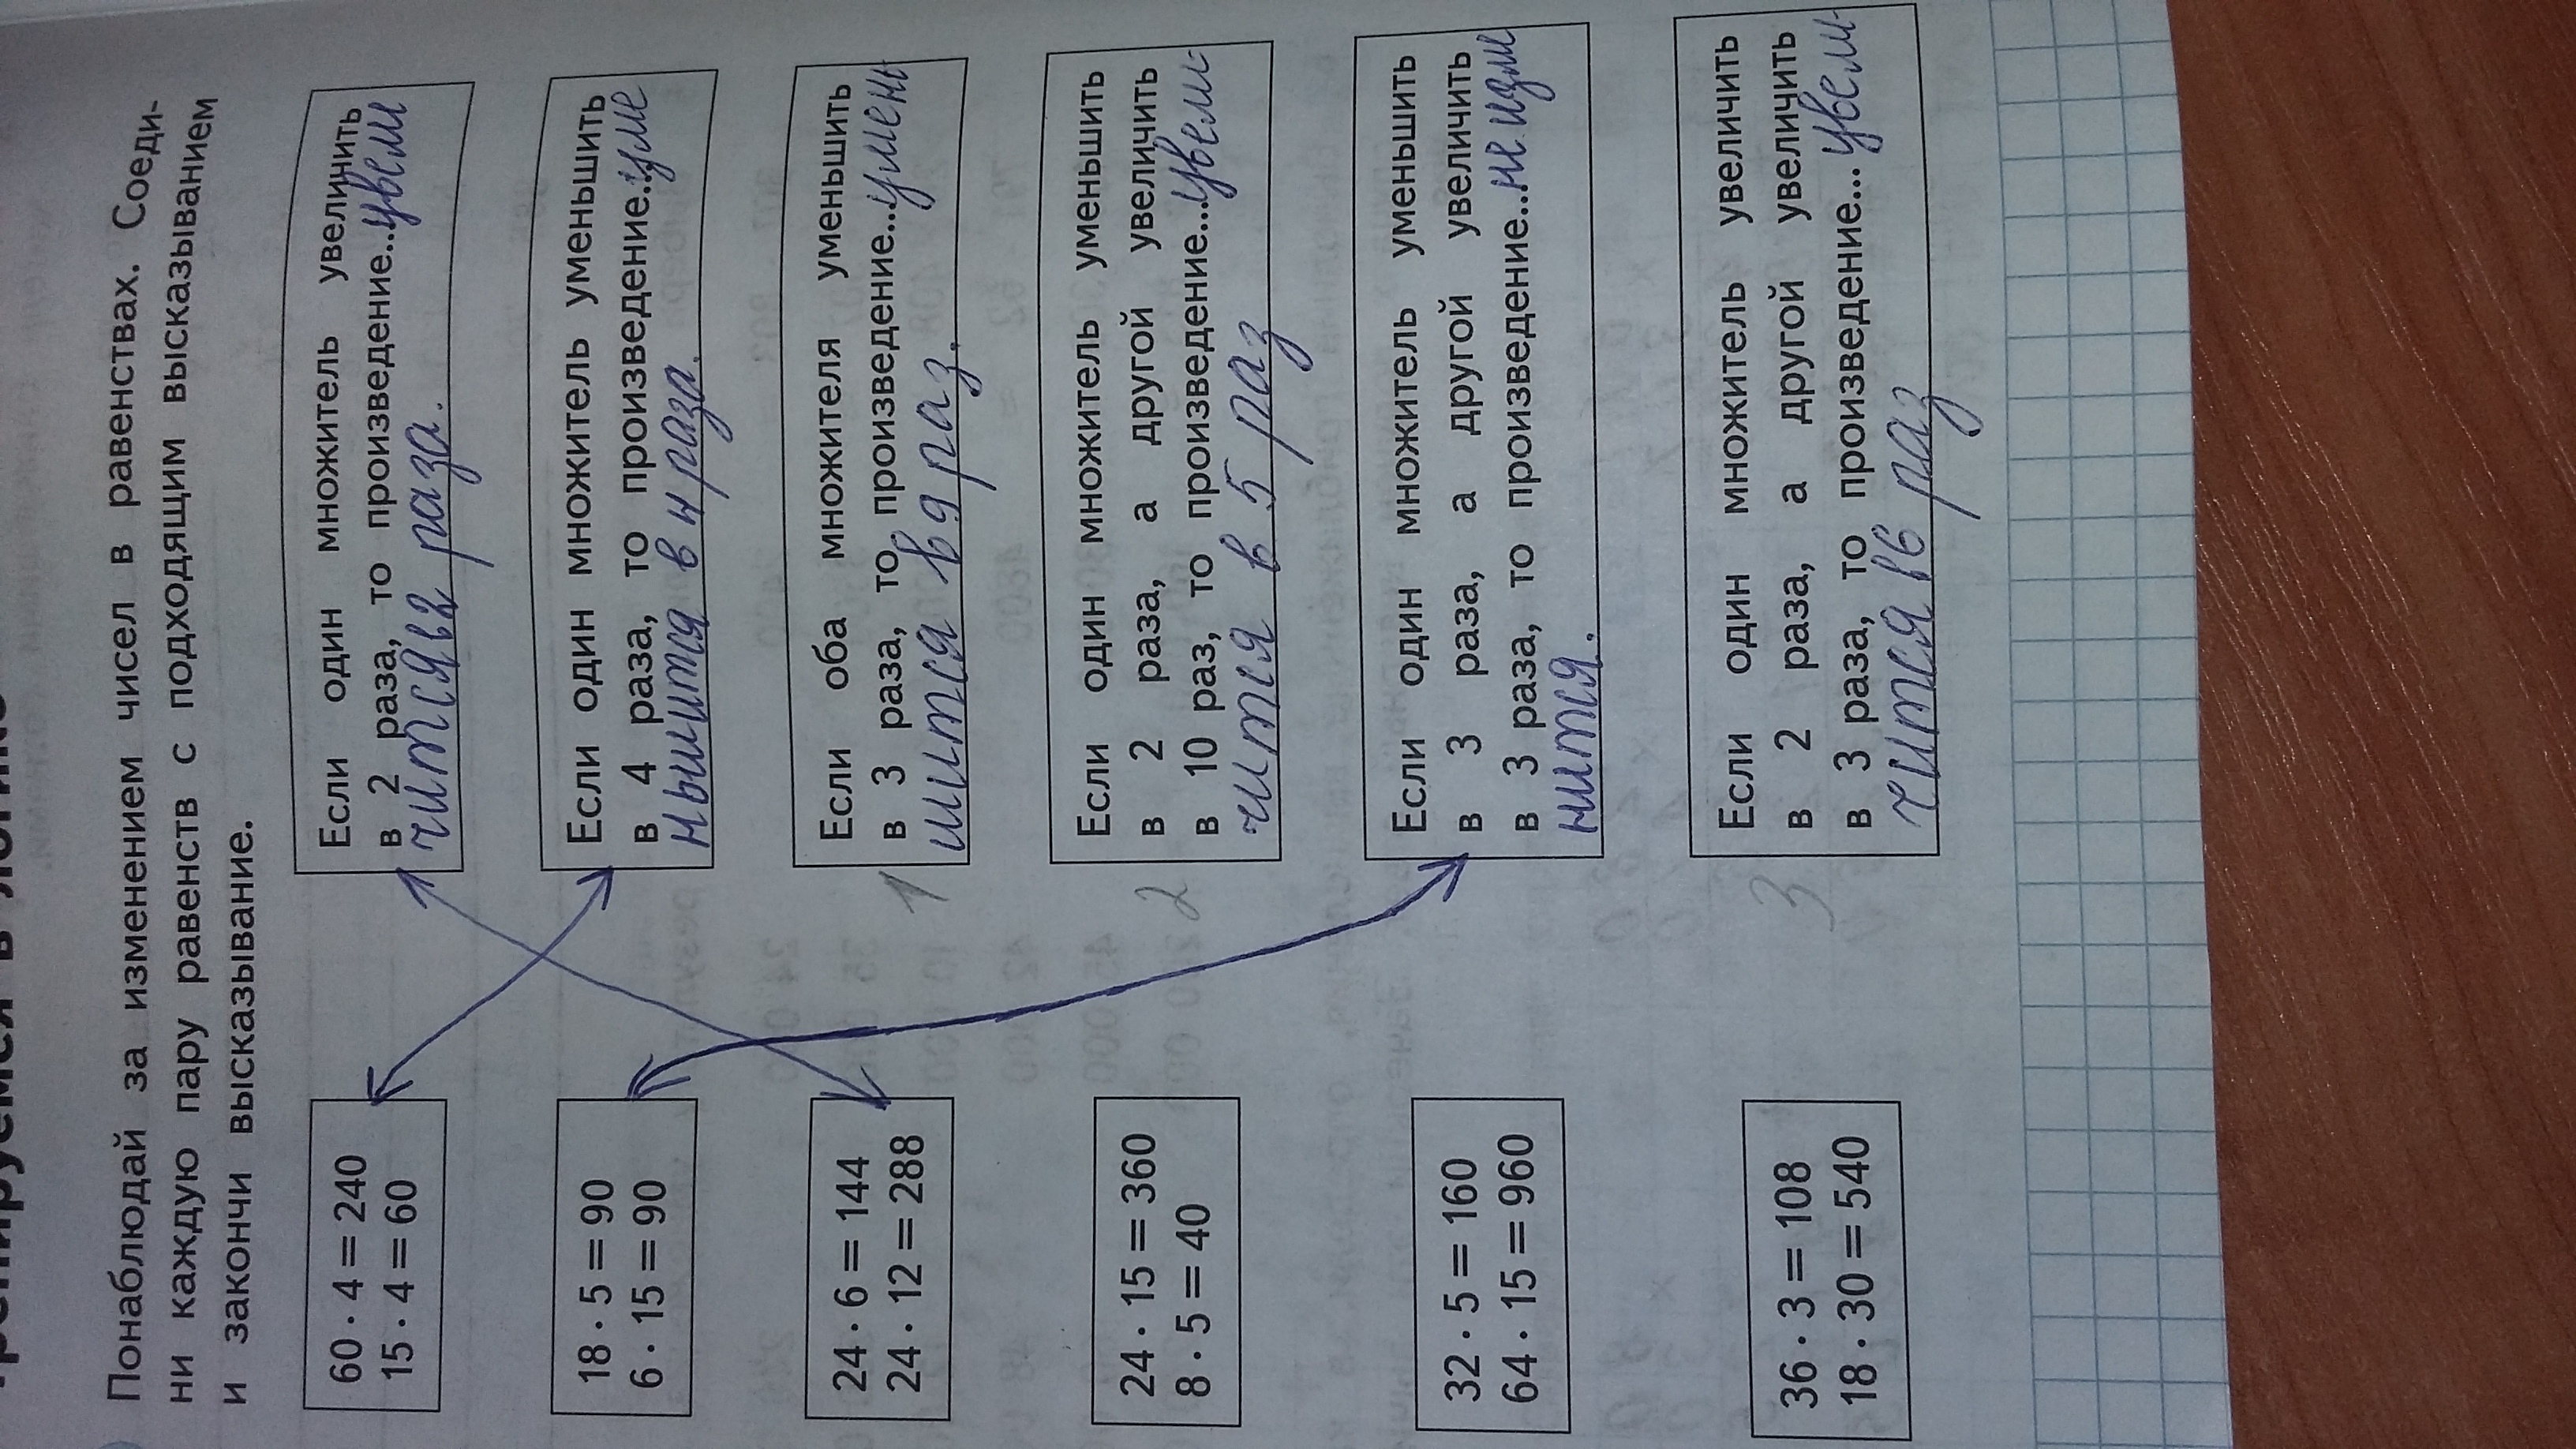 Понаблюдай за изменением чисел в равенствах. Соеди-
ни каждую пару равенств с подходящим высказыванием
и закончи высказывание.
60 · 4 = 240
15 · 4 = 60
Если один множитель увеличить
в 2 раза, то произведение...увели
чится в 2 раза.
18 · 5 = 90
6 · 15 = 90
Если один множитель уменьшить
в 4 раза, то произведение...уме
ньшится в 4 раза.
24 · 6 = 144
24 · 12 = 288
Если оба множителя уменьшить
в 3 раза, то произведение...умень
шится в 9 раз.
1
24 · 15 = 360
8 · 5 = 40
Если один множитель уменьшить
в 2 раза, а другой увеличить
в 10 раз, то произведение...увели-
чится в 5 раз
2
32 · 5 = 160
64 · 15 = 960
Если один множитель уменьшить
в 3 раза, а другой увеличить
в 3 раза, то произведение...не изме
нится.
36 · 3 = 108
18 · 30 = 540
Если один множитель увеличить
в 2 раза, а другой увеличить
в 3 раза, то произведение... увели-
чится в 6 раз
3